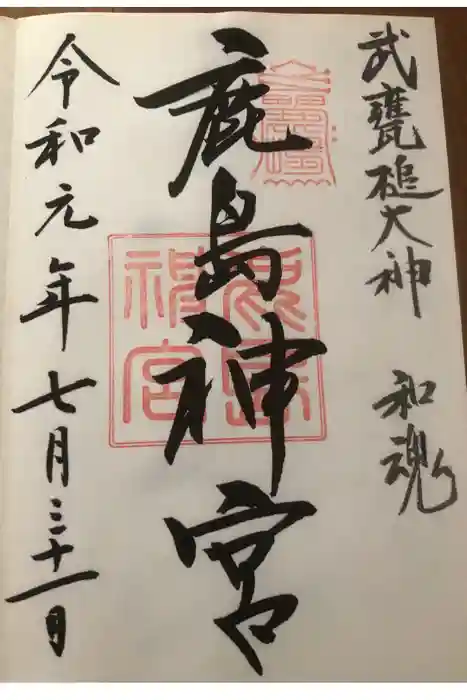 武甕槌大神 和魂
鹿島神宮
鹿島
神宮
令和元年七月三十一日